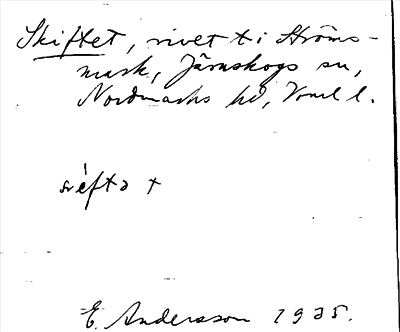 Skiftet, rivet t i Ströms-
mark, Järnskogs sn,
Nordmarks hd, Vrml l.
E. Andersson 1935.